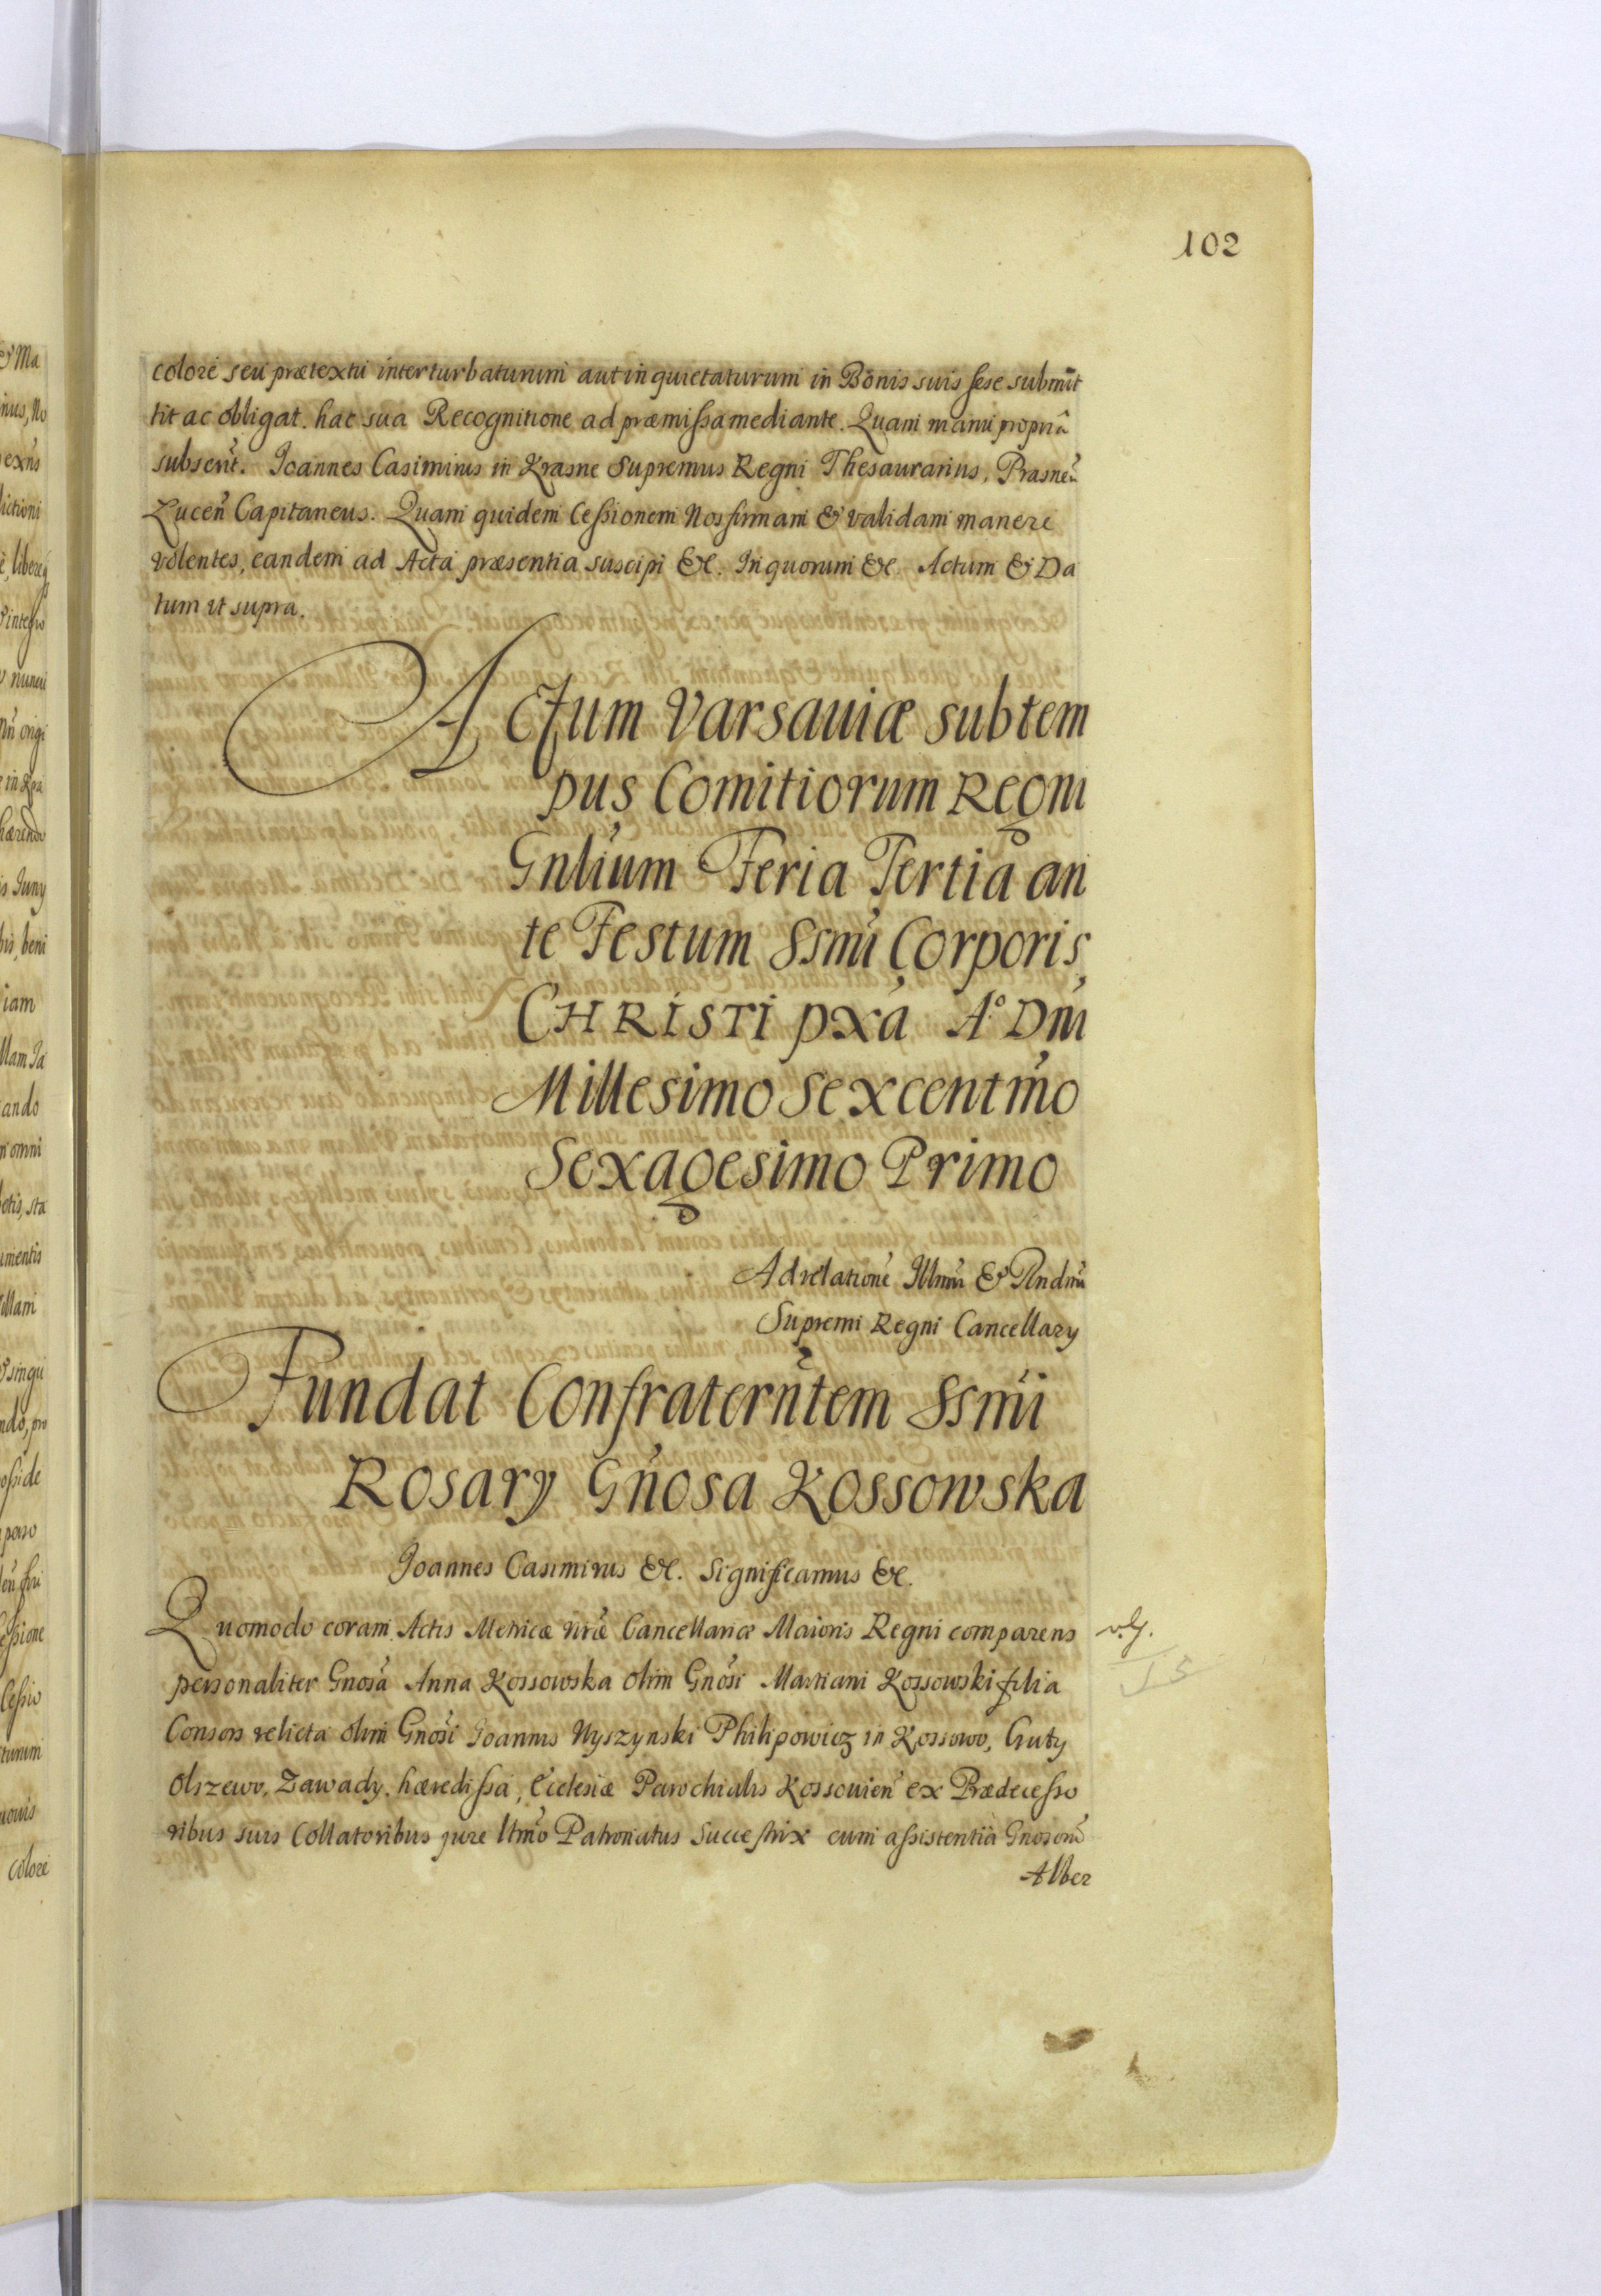 102
colore seu prætextu interturbaturum aut inquietaturum in Bonis suis sese submit
tit ac obligat. hac sua Recognitione ad præmissa mediante. Quam manu propriâ
subscrit. Joannes Casimirus in Krasne Supremus Regni Thesaurarius, Prasnen
Lucen Capitaneus. Quam quidem Cessionem Nos firmam & validam manere
volentes, eandem ad Acta præsentia suscipi &c. In quorum &c. Actum & Da
tum ut supra.
Actum Varsaviæ sub tem
pus Comitiorum Regni
Gnlium Feria Tertia an
te Festum SSmi Corporis
CHRISTI pxa Aº Dni
Millesimo Sexcentmo
Sexagesimo Primo
Ad relatione Illmi & Rndmi
Supremi Regni Cancellary
Fundat Confraterntem SSmi
Rosary Gnosa Kossowska
Joannes Casimirus &c. Significamus &c.
Quomodo coram Actis Metricæ nræ Cancellariæ Maioris Regni comparens
personaliter Gnosa Anna Kossowska olim Gnosi Martiani Kossowski filia
Consors relicta olim Gnosi Joannis Wyszynski Philipowicz in Kossowo, Guty
Olszewo, Zawady. hæredissa, Ecclesiæ Parochialis Kossouien ex Prædecesso
ribus suis Collatoribus jure ltmo Patronatus Successtrix cum assistentia Gnosom
Alber